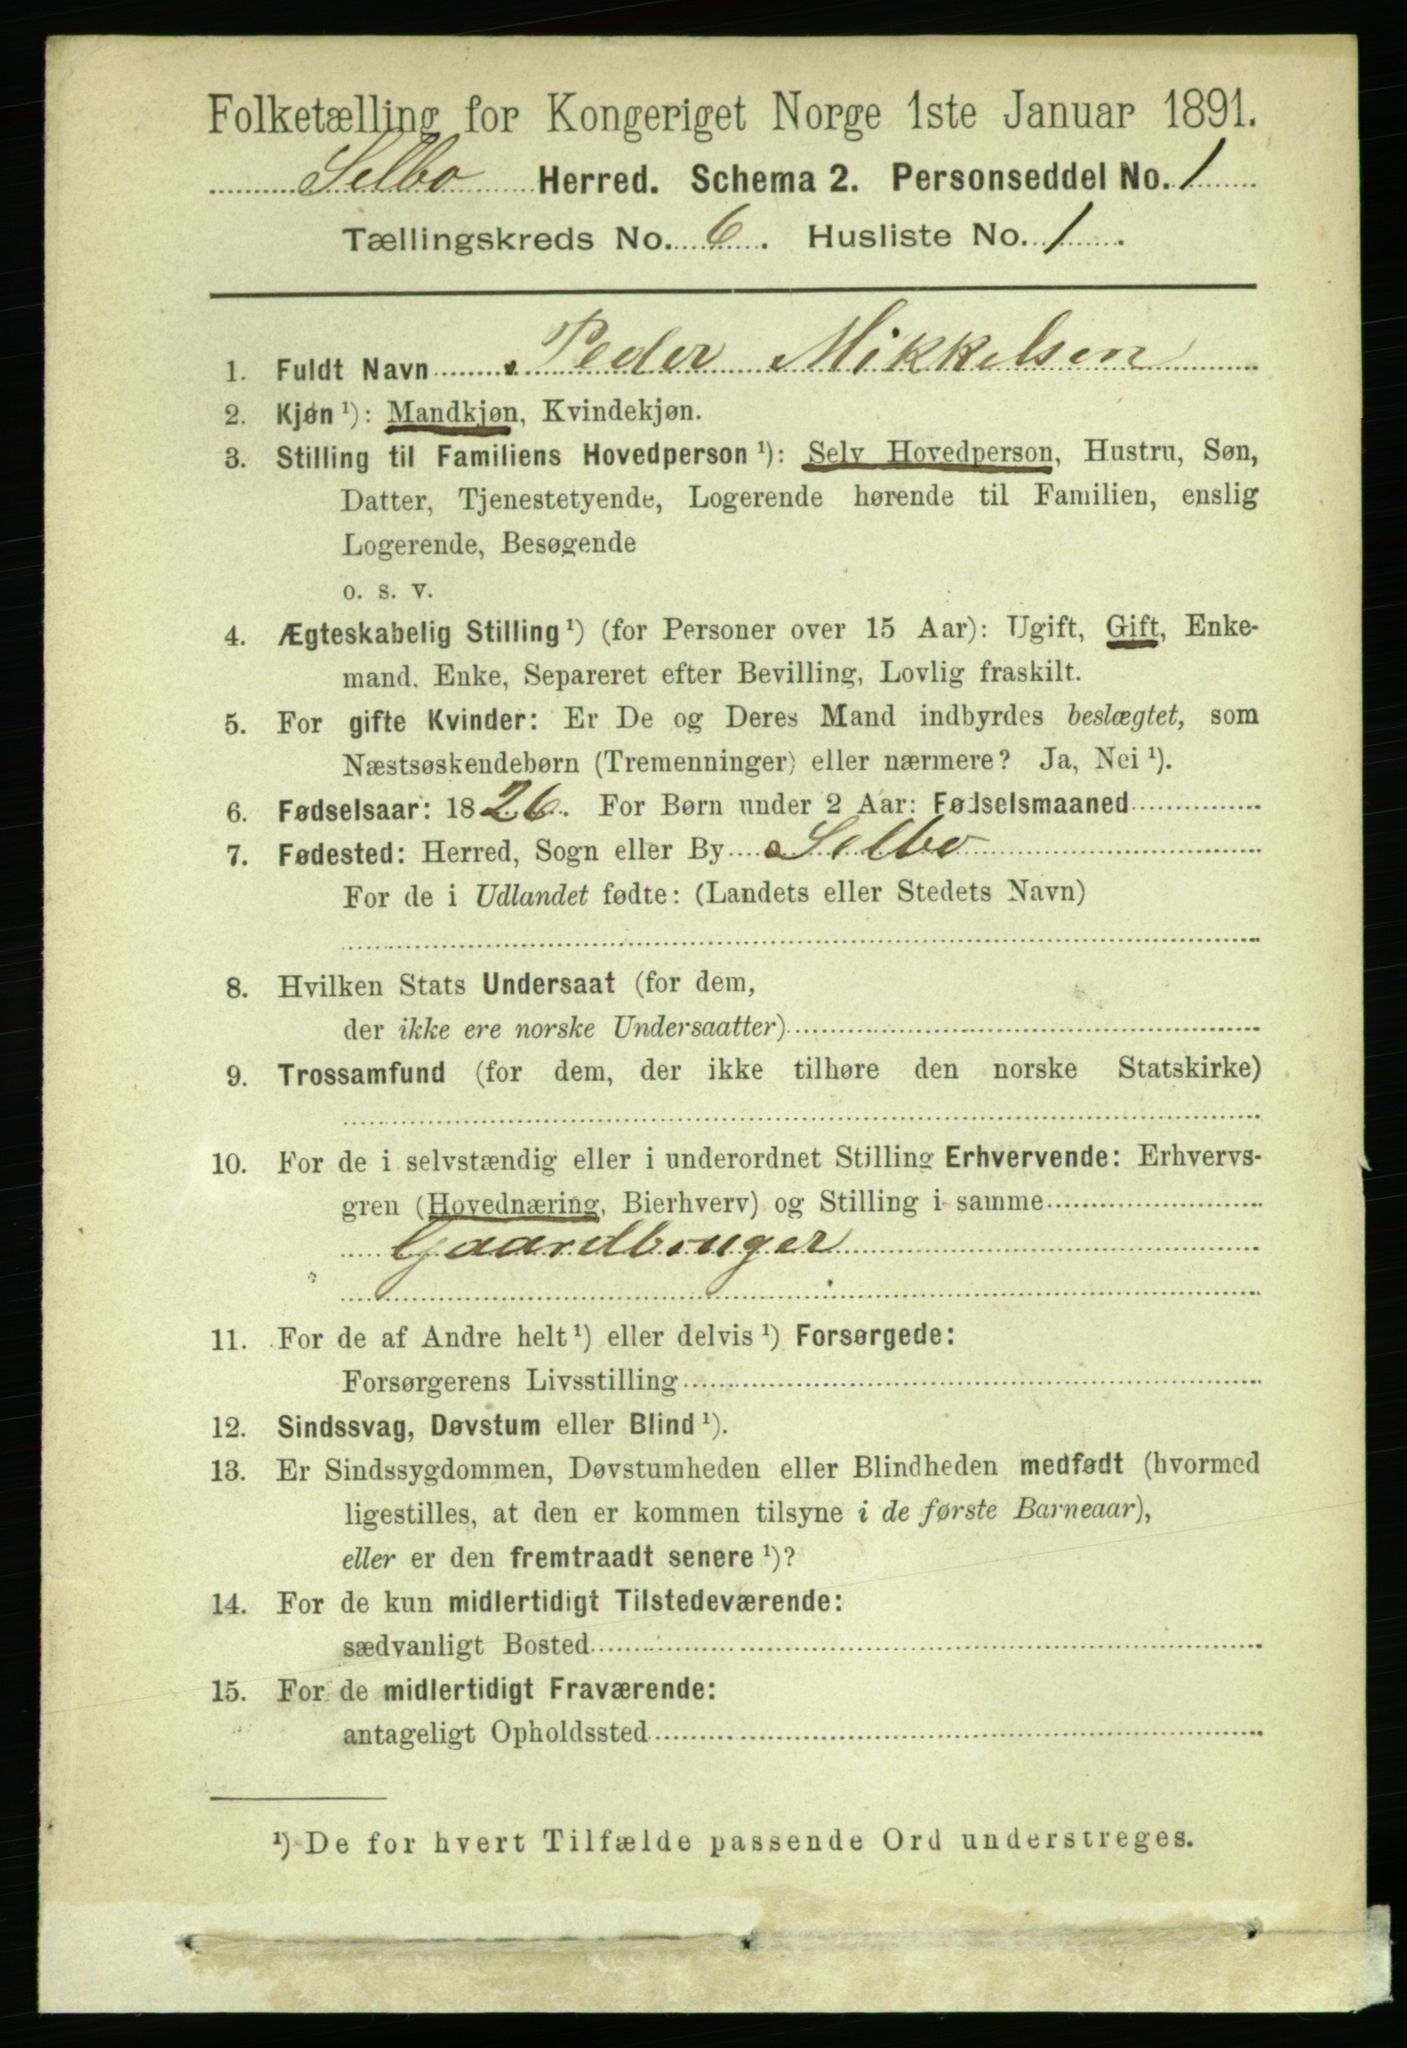 Folketælling for Kongeriget Norge 1ste Januar 1891.
Selbo Herred. Schema 2. Personseddel No. 1
Tællingskreds No. 6. Husliste No. 1.
1. Fuldt Navn Peder Mikkelsen
2. Kjøn ¹): Mandkjøn, Kvindekjøn.
3. Stilling til Familiens Hovedperson ¹): Selv Hovedperson, Hustru, Søn,
Datter, Tjenestetyende, Logerende hørende til Familien, enslig
Logerende, Besøgende
o. s. v.
4. Ægteskabelig Stilling ¹) (for Personer over 15 Aar): Ugift, Gift, Enke-
mand. Enke, Separeret efter Bevilling, Lovlig fraskilt.
5. For gifte Kvinder: Er De og Deres Mand indbyrdes beslægtet, som
Næstsøskendebørn (Tremenninger) eller nærmere? Ja, Nei ¹).
6. Fødselsaar: 1826. For Børn under 2 Aar: Fødselsmaaned
7. Fødested: Herred, Sogn eller By Selbo
For de i Udlandet fødte: (Landets eller Stedets Navn)
8. Hvilken Stats Undersaat (for dem,
der ikke ere norske Undersaatter)
9. Trossamfund (for dem, der ikke tilhøre den norske Statskirke)
10. For de i selvstændig eller i underordnet Stilling Erhvervende: Erhvervs-
gren (Hovednæring, Bierhverv) og Stilling i samme
Gaardbruger
11. For de af Andre helt ¹) eller delvis ¹) Forsørgede:
Forsørgerens Livsstilling
12. Sindssvag, Døvstum eller Blind ¹).
13. Er Sindssygdommen, Døvstumheden eller Blindheden medfødt (hvormed
ligestilles, at den er kommen tilsyne i de første Barneaar),
eller er den fremtraadt senere ¹)?
14. For de kun midlertidigt Tilstedeværende:
sædvanligt Bosted
15. For de midlertidigt Fraværende:
antageligt Opholdssted
¹) De for hvert Tilfælde passende Ord understreges.